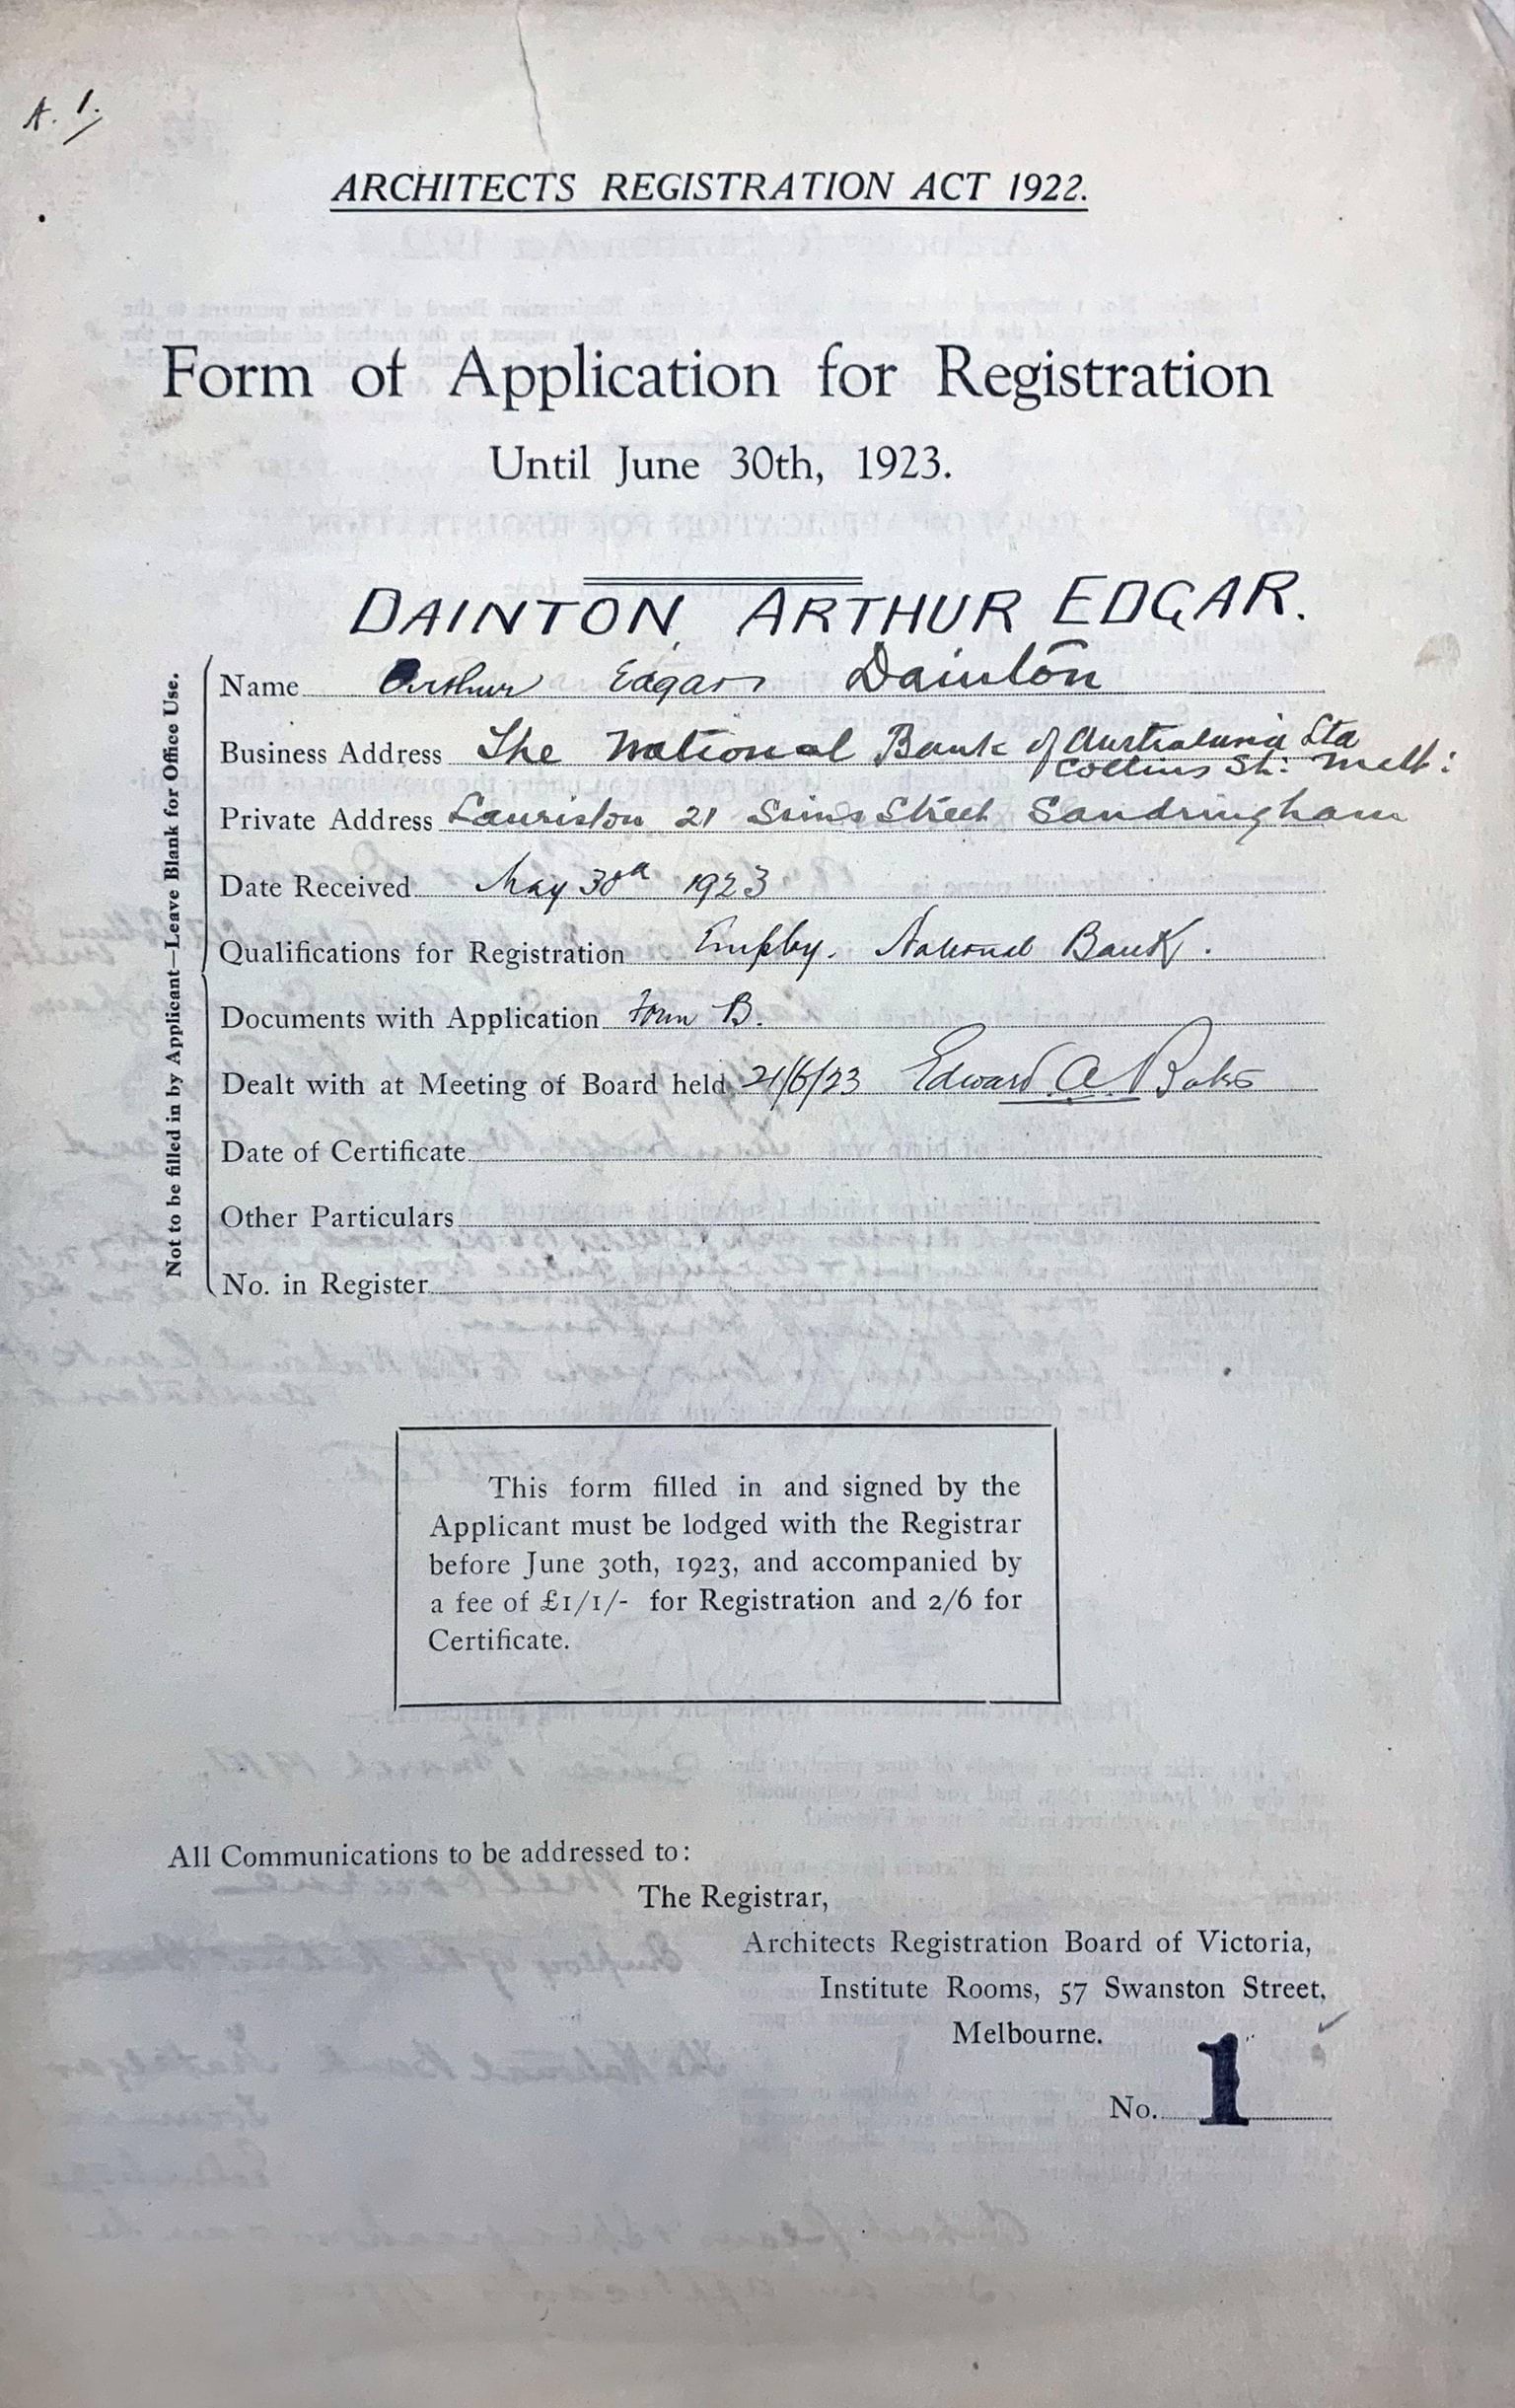 A. 1.
ARCHITECTS REGISTRATION ACT 1922.
Form of Application for Registration
Until June 30th, 1923.
DAINTON, ARTHUR EDGAR.
Not to be filled in by Applicant—Leave Blank for Office Use.
Name Arthur Edgar Dainton
Business Address The National Bank of Australasia Ltd
Collins St: Melb:
Private Address Lauriston 21 Sims Street Sandringham
Date Received May 30th 1923
Qualifications for Registration Employ. National Bank.
Documents with Application Form B.
Dealt with at Meeting of Board held 21/6/23 Edward A. Bates
Date of Certificate
Other Particulars
No. in Register
This form filled in and signed by the
Applicant must be lodged with the Registrar
before June 30th, 1923, and accompanied by
a fee of £1/1/- for Registration and 2/6 for
Certificate.
All Communications to be addressed to:
The Registrar,
Architects Registration Board of Victoria,
Institute Rooms, 57 Swanston Street,
Melbourne.
No. 1